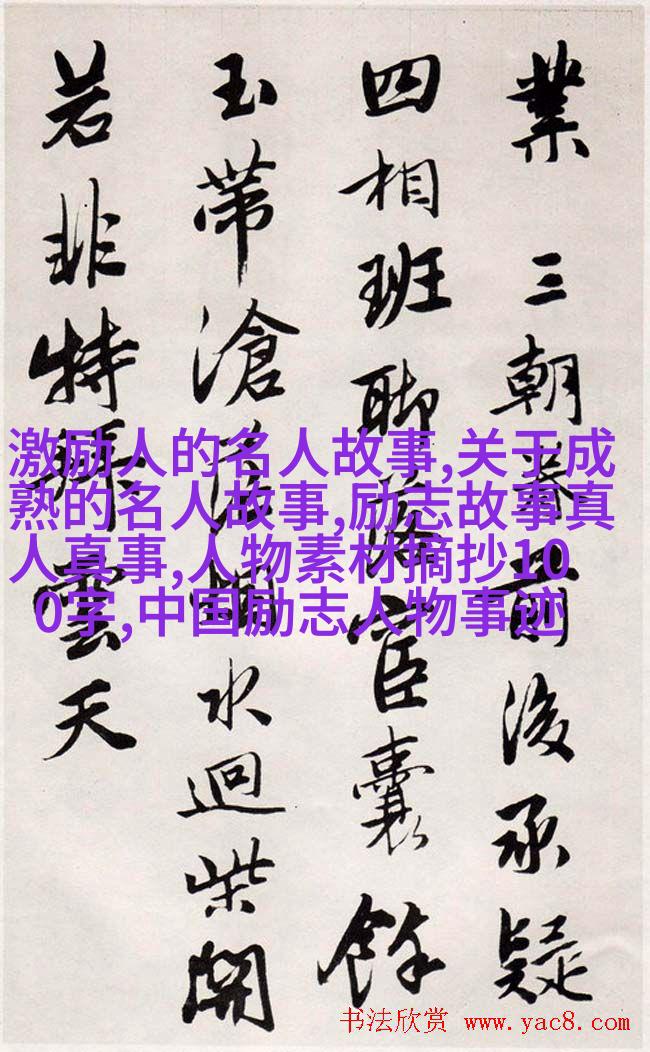 業 三朝眷前後承疑
四相班聊落宦囊餘
玉帶滄烟水迴柴開
若非特拜雲天
激励人的名人故事,关于成
熟的名人故事,励志故事真
人真事,人物素材摘抄10
0字,中国励志人物事迹
书法欣赏 www.yac8.com